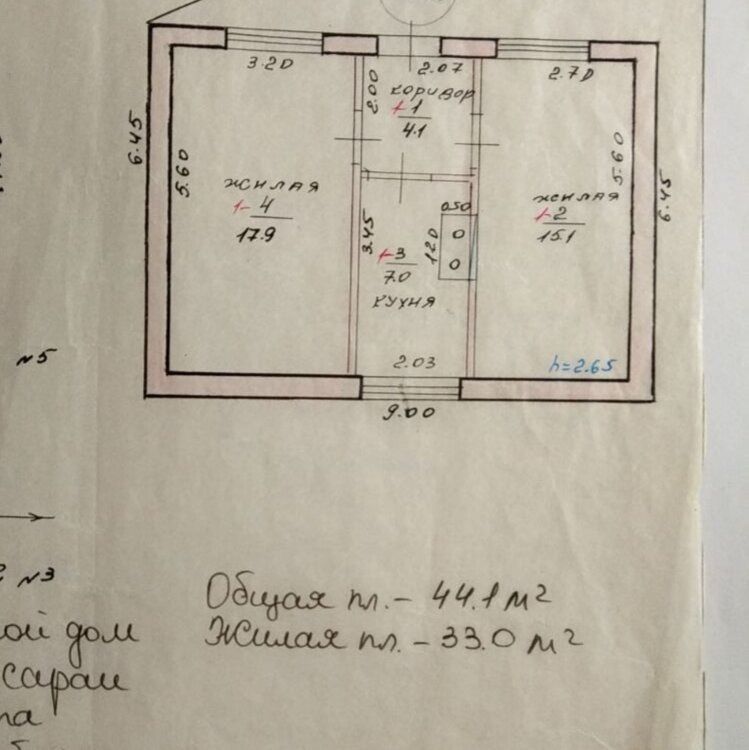 3.20
2.07
2.70
2.00
коридор
1-1
4.1
6.45
5.60
5.60
6.45
жилая
1-4
17.9
жилая
1-2
15.1
0.50
3.45
1.20
1-3
7.0
кухня
2.03
h=2.65
9.00
№5
№3
Общая пл.- 44.1 м²
ой дом
Жилая пл.- 33.0 м²
сараи